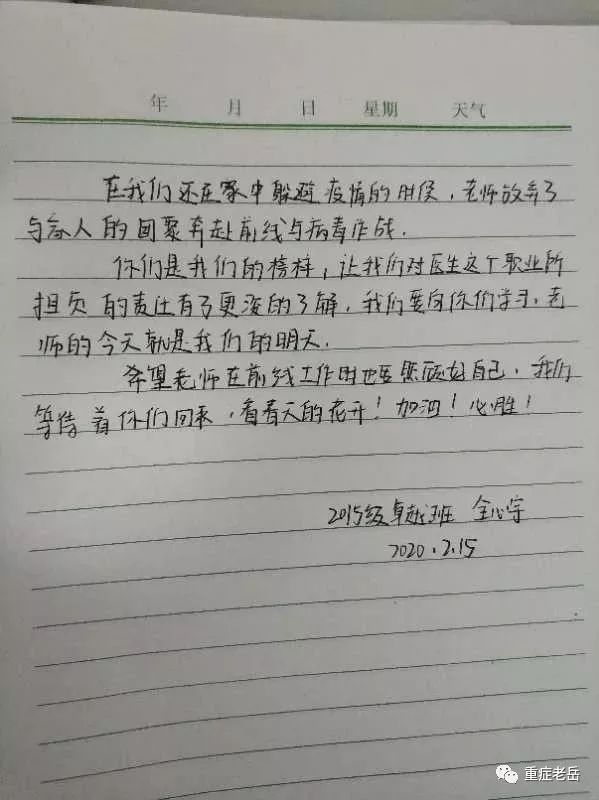 年 月 日 星期 天气
在我们还在家中躲避疫情的时候，老师放弃了
与家人的团聚奔赴前线与病毒作战.
你们是我们的榜样，让我们对医生这个职业所
担负的责任有了更深的了解，我们要向你们学习，老
师的今天就是我们的明天.
希望老师在前线工作时也要照顾好自己，我们
等待着你们回来，看春天的花开！加油！必胜！
2015级卓越班 全心宇
2020.2.15
重症老岳